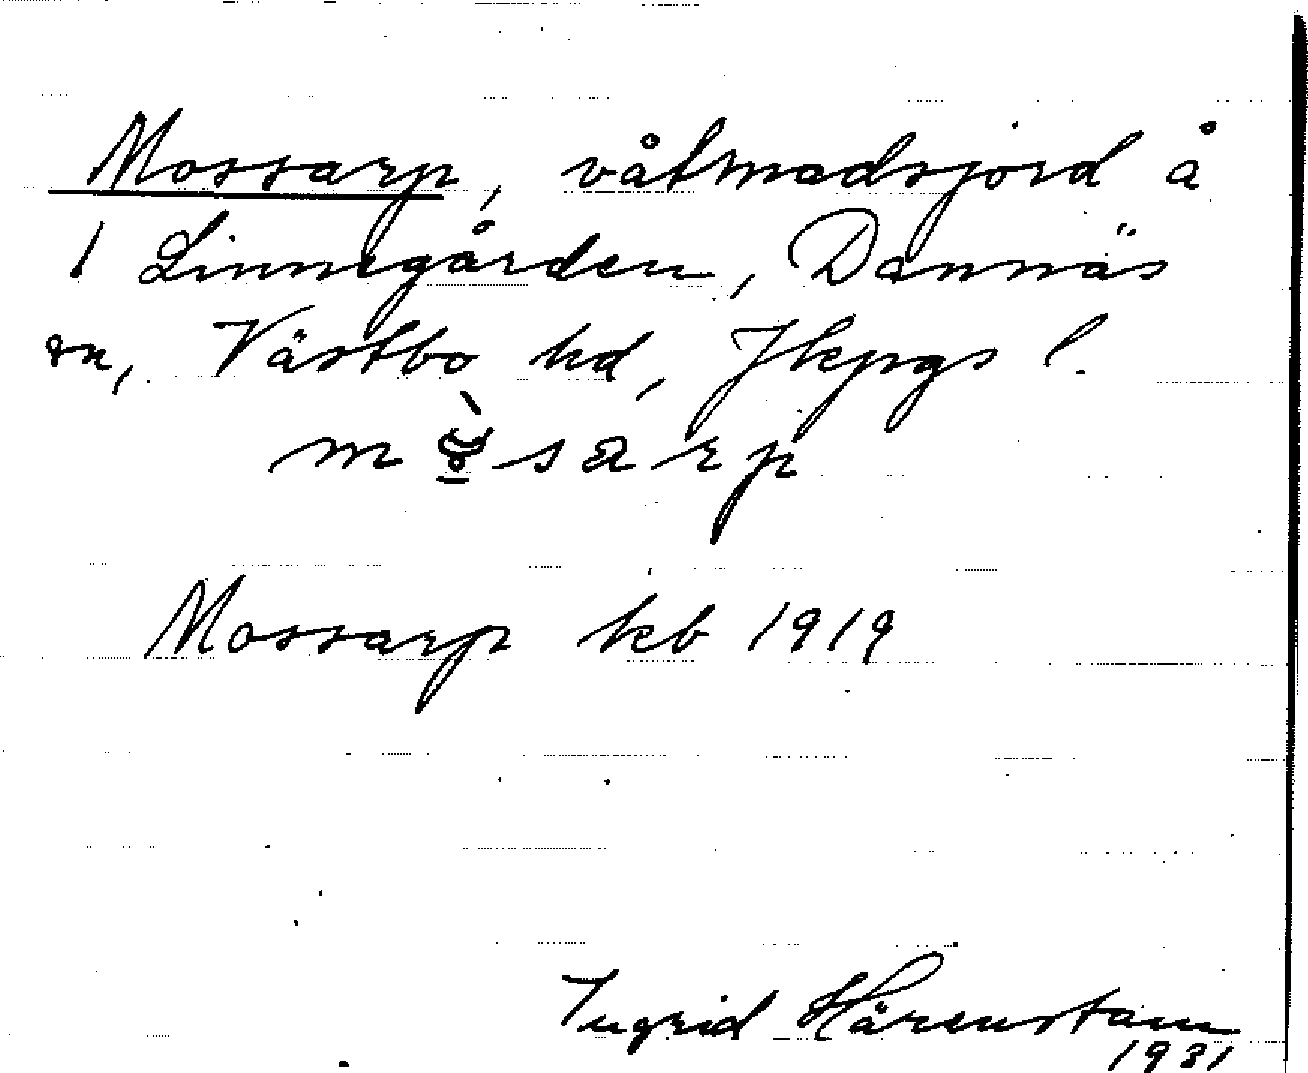 Mossarp, våtmadsjord å
1 Linnegården, Dannäs
sn, Västbo hd, Jkpgs l.
sarp
Mossarp kb 1919
Ingrid Härenstam
1931